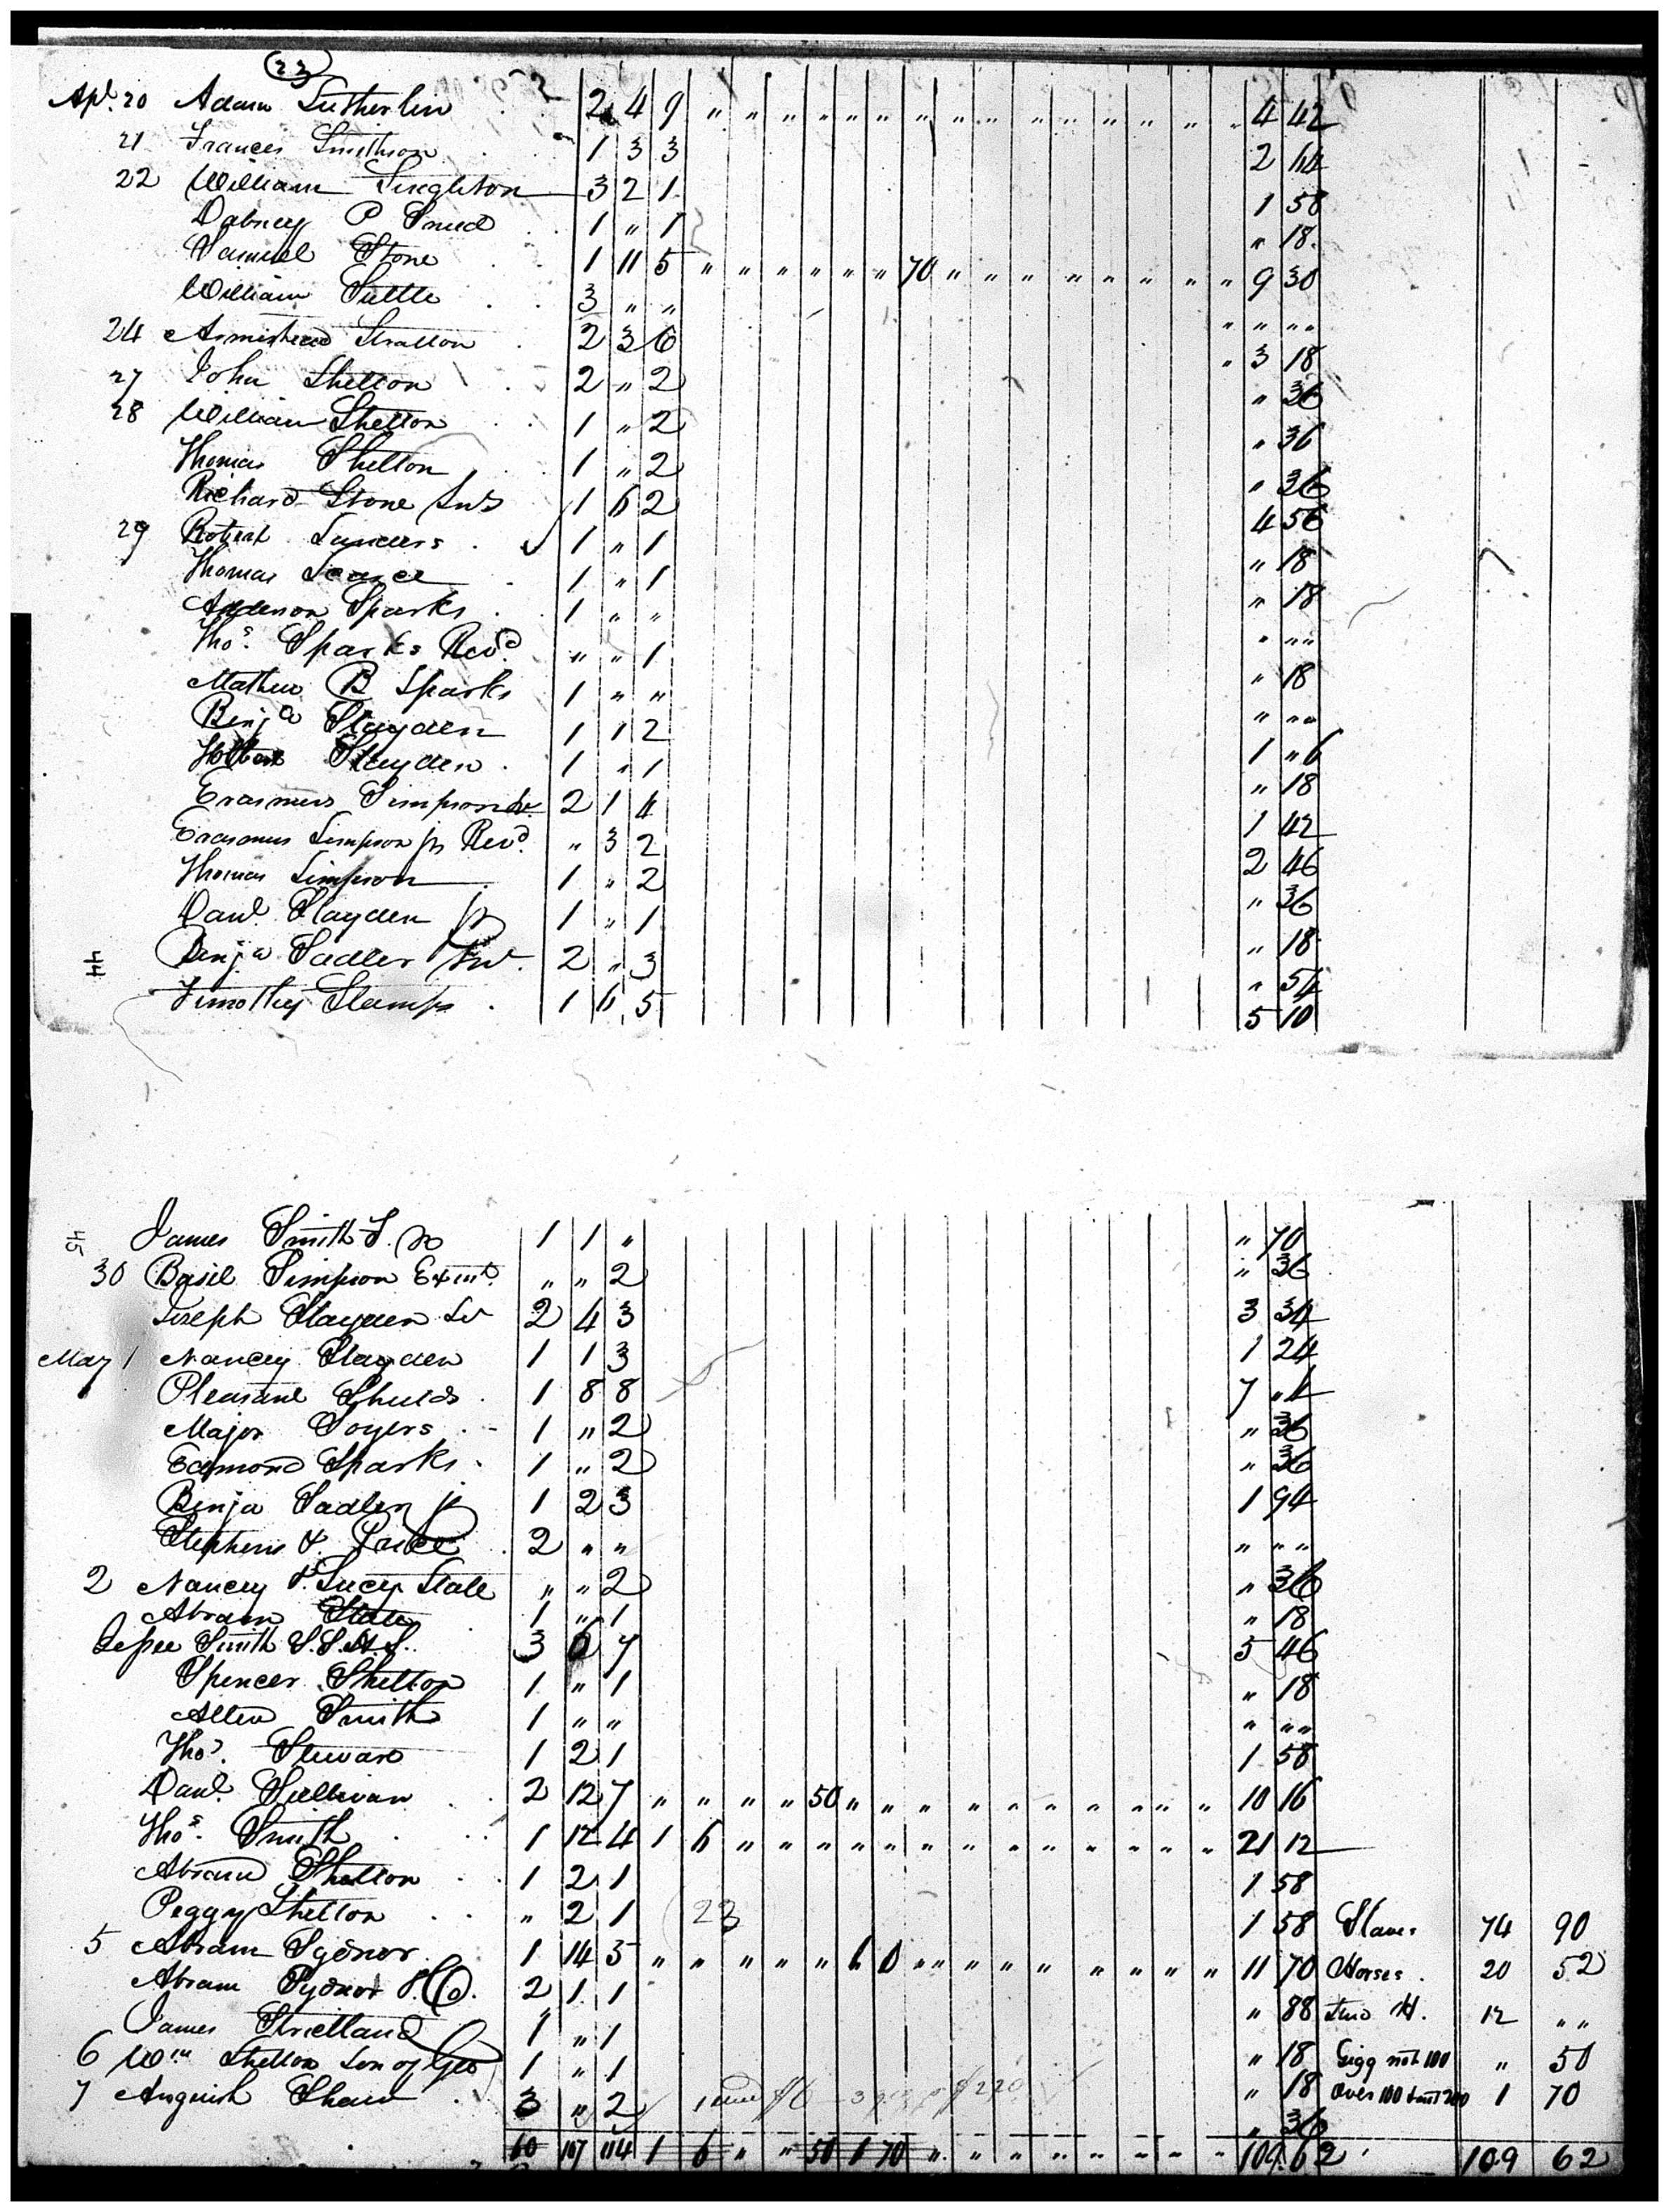 23
Apl. 20 Adam Sutherlin 2 4 9 " " " " " " " " " " " " " " " 4 42
21 Frances Smithson 1 3 3 2 64
22 William Singleton 3 2 1 1 58
Dabney P Sneed 1 " 1 " 18
Samuel Stone 1 11 5 " " " " " " 70 " " " " " " " " 9 30
William Suttle 3 " " " " " "
24 Armistead Stratton 2 3 6 " 3 18
27 John Shelton 2 " 2 " 36
28 William Shelton 1 " 2 " 36
Thomas Shelton 1 " 2 " 36
Richard Stone 1 6 2 4 56
29 Robert Sanders 1 " 1 " 18
Thomas Scarce 1 " 1 " 18
Anderson Sparks 1 " " " " "
Thos. Sparks Revd. " " 1 " 18
Mathew B Sparks 1 " " " " "
Benja Slayden 1 1 2 1 " 6
Slayden 1 " 1 " 18
Erasmus Simpson Sr. 2 1 4 1 42
Erasmus Simpson jr Revd. " 3 2 2 46
Thomas Simpson 1 " 2 " 36
Danl. Slayden jr 1 " 1 " 18
Benja Sadler 2 " 3 " 54
44
Timothy Stamps 1 6 5 5 10
45
James Smith S. 1 1 " " 70
30 Basil Simpson " " 2 " 36
Joseph Slayden Sr 2 4 3 3 34
May 1 Nancy Slayden 1 1 3 1 24
Pleasant Shields 1 8 8 7 " 4
Major Soyers 1 " 2 " 36
Edmond Sparks 1 " 2 " 36
Benja Sadler jr 1 2 3 1 94
Stephens & Price 2 " " " " "
2 Nancy & Lucy Slate " " 2 " 36
Abram Slate 1 " 1 " 18
Jessee Smith S.S.H.S. 3 6 7 5 46
Spencer Shelton 1 " 1 " 18
Allen Smith 1 " " " " "
Thos. Steward 1 2 1 1 58
Danl. Sullivan 2 12 7 " " " " 50 " " " " " " " " " " 10 16
Thos. Smith 1 12 4 1 6 " " " " " " " " " " " " " 21 12
Abram Shelton 1 2 1 1 58
Peggy Shelton " 2 1 23 1 58 Slaves 74 90
5 Abram Sydnor 1 14 5 " " " " " 1 0 " " " " " " " " " 11 70 Horses 20 52
Abram Sydnor & Co. 2 1 1 " 88 Stud H. 12 " "
James Strictland 1 " 1 " 18 Gigg not 100 " 50
6 Wm Shelton Son of Geo 1 " 1 " 18 Over 100 & not 200 1 70
7 Anguish Shaw 3 " 2 " 36
60 107 114 1 6 " " " 50 1 70 " " " " " " " " 109 62 109 62